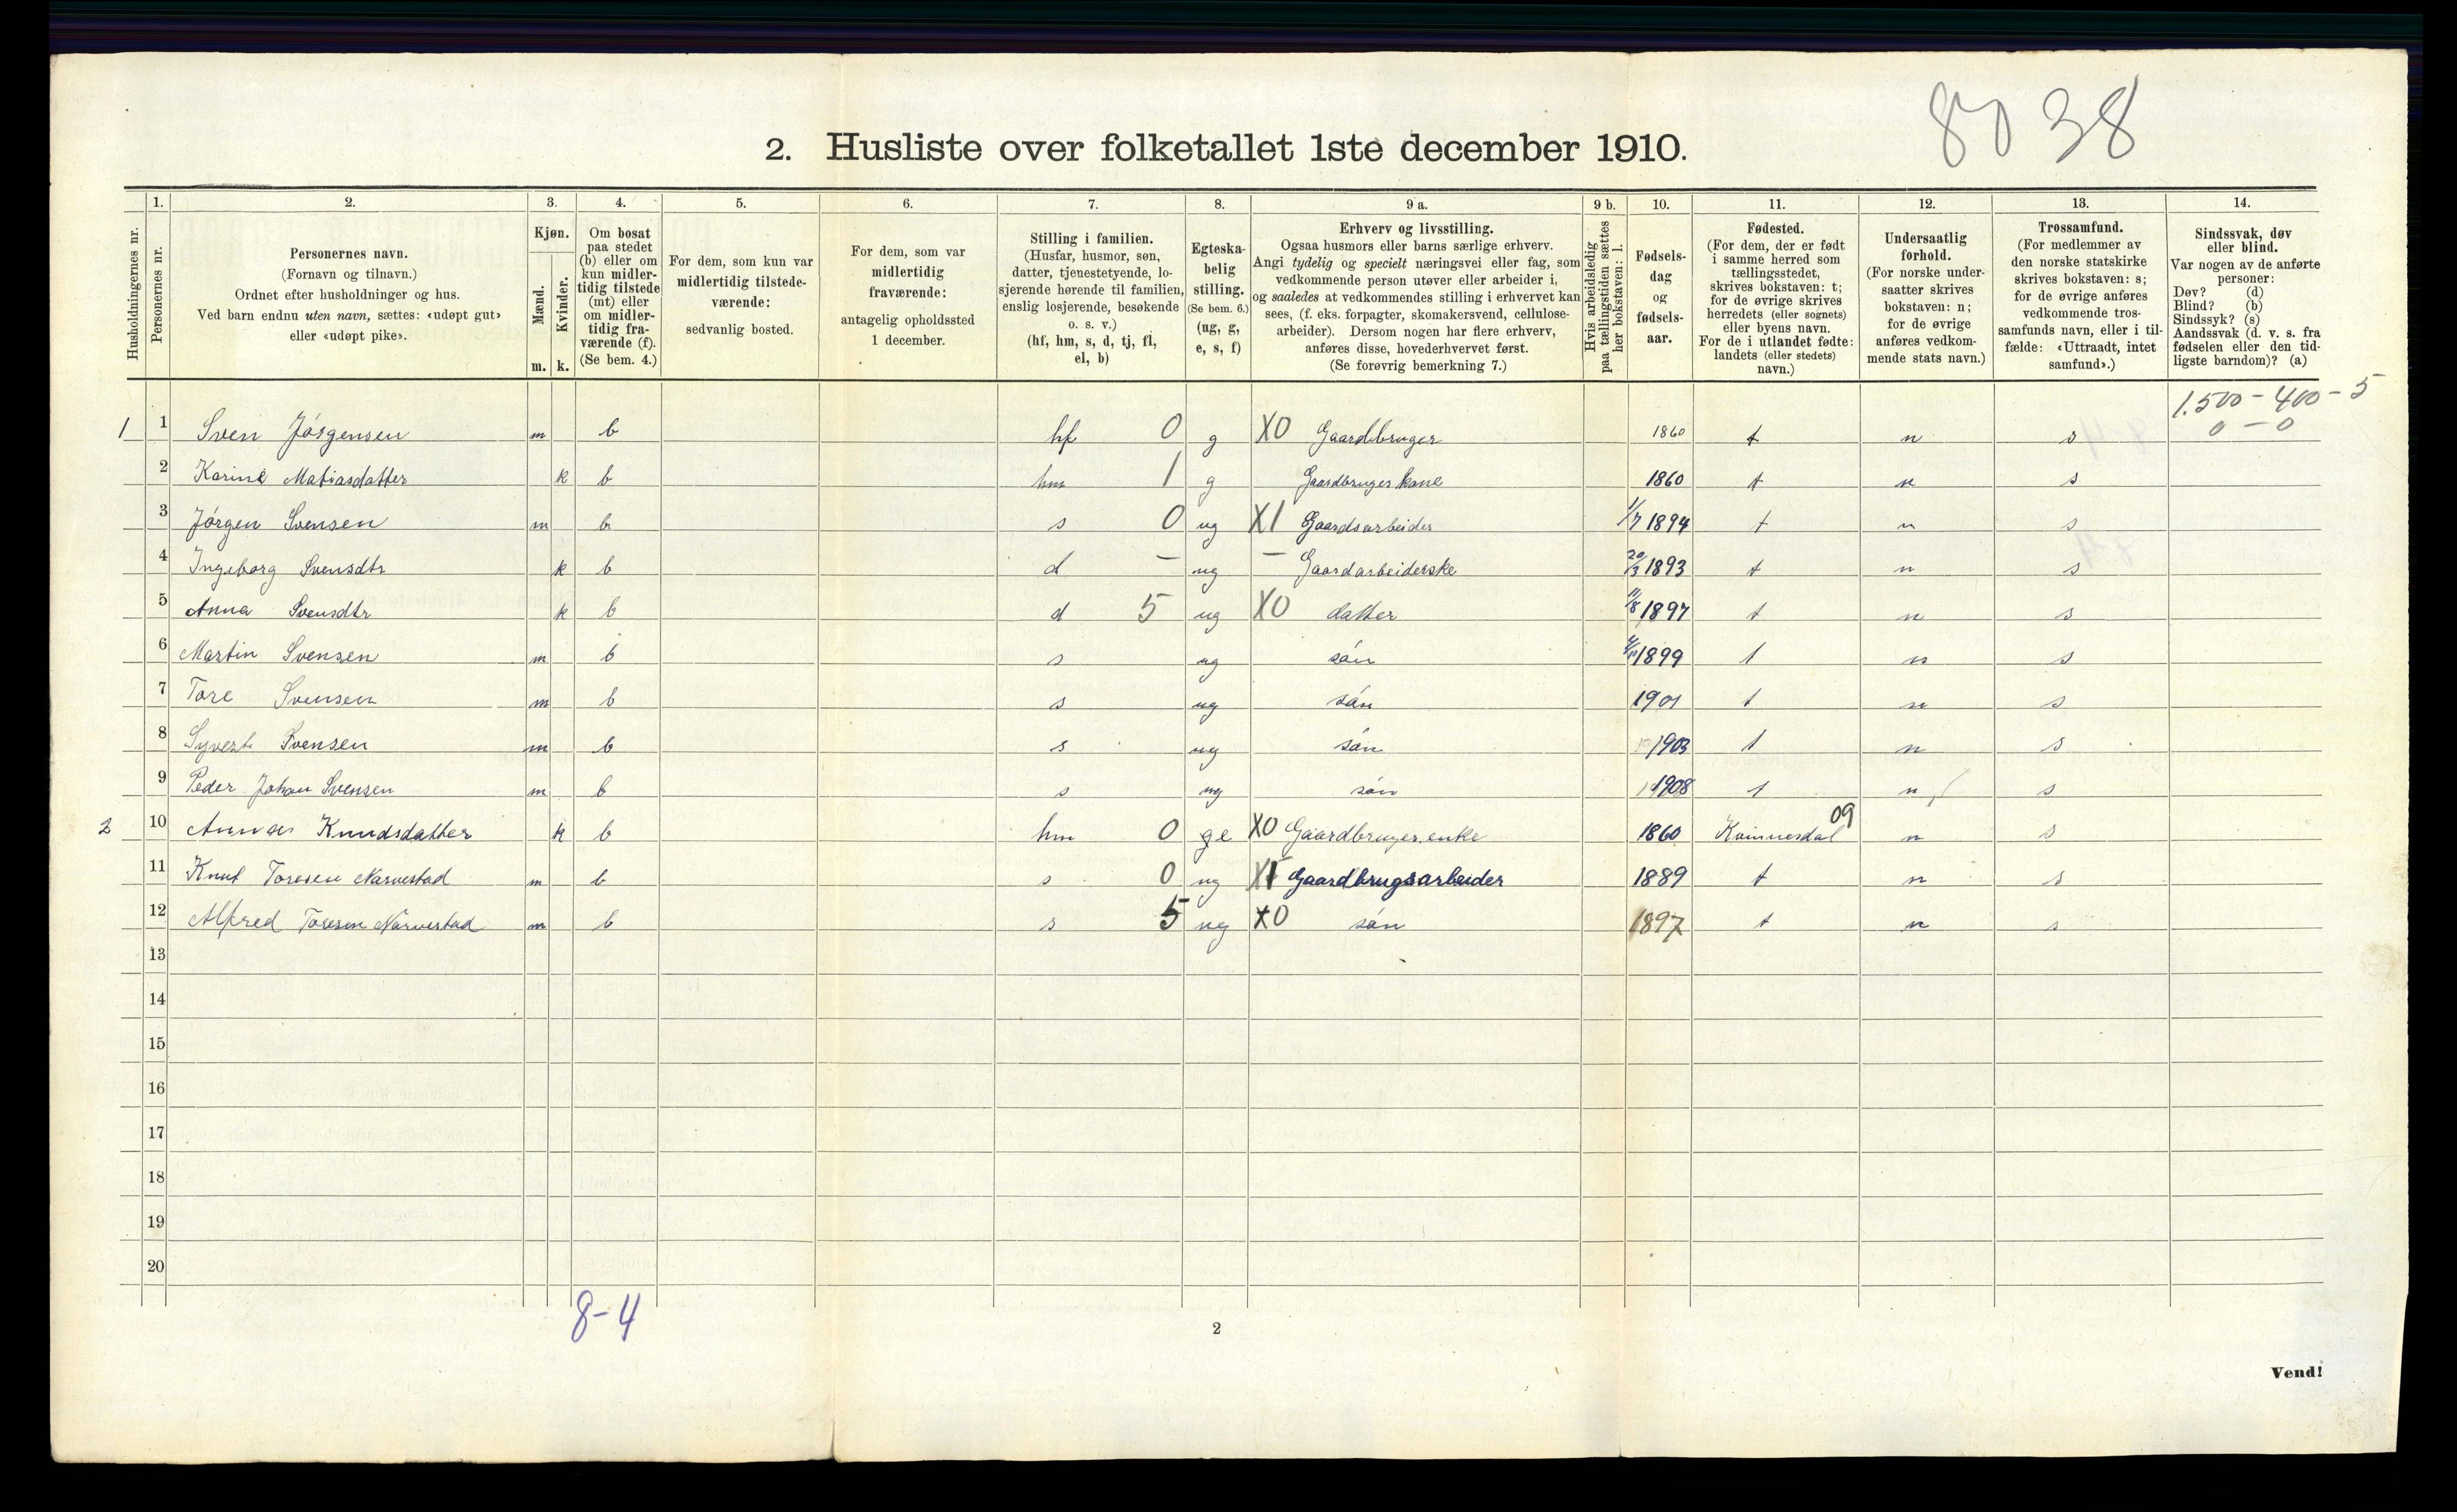 8038
2. Husliste over folketallet 1ste december 1910.
Husholdningernes nr.
1.
Personernes nr.
2.
Personernes navn.
(Fornavn og tilnavn.)
Ordnet efter husholdninger og hus.
Ved barn endnu uten navn, sættes: «udøpt gut»
eller «udøpt pike».
3.
Kjøn.
Mænd.
Kvinder.
m. k.
4.
Om bosat
paa stedet
(b) eller om
kun midler-
tidig tilstede
(mt) eller
om midler-
tidig fra-
værende (f).
(Se bem. 4.)
5.
For dem, som kun var
midlertidig tilstede-
værende:
sedvanlig bosted.
6.
For dem, som var
midlertidig
fraværende:
antagelig opholdssted
1 december.
7.
Stilling i familien.
(Husfar, husmor, søn,
datter, tjenestetyende, lo-
sjerende hørende til familien,
enslig losjerende, besøkende
o. s. v.)
(hf, hm, s, d, tj, fl,
el, b)
8.
Egteska-
belig
stilling.
(Se bem. 6.)
(ug, g,
e, s, f)
9 a.
Erhverv og livsstilling.
Ogsaa husmors eller barns særlige erhverv.
Angi tydelig og specielt næringsvei eller fag, som
vedkommende person utøver eller arbeider i,
og saaledes at vedkommendes stilling i erhvervet kan
sees, (f. eks. forpagter, skomakersvend, cellulose-
arbeider). Dersom nogen har flere erhverv,
anføres disse, hovederhvervet først.
(Se forøvrig bemerkning 7.)
9 b.
Hvis arbeidsledig
paa tællingstiden sættes
her bokstaven: l.
10.
Fødsels-
dag
og
fødsels-
aar.
11.
Fødested.
(For dem, der er født
i samme herred som
tællingsstedet,
skrives bokstaven: t;
for de øvrige skrives
herredets (eller sognets)
eller byens navn.
For de i utlandet fødte:
landets (eller stedets)
navn.)
12.
Undersaatlig
forhold.
(For norske under-
saatter skrives
bokstaven: n;
for de øvrige
anføres vedkom-
mende stats navn.)
13.
Trossamfund.
(For medlemmer av
den norske statskirke
skrives bokstaven: s;
for de øvrige anføres
vedkommende tros-
samfunds navn, eller i til-
fælde: «Uttraadt, intet
samfund».)
14.
Sindssvak, døv
eller blind.
Var nogen av de anførte
personer:
Døv? (d)
Blind? (b)
Sindssyk? (s)
Aandssvak (d. v. s. fra
fødselen eller den tid-
ligste barndom)? (a)
1.500 - 400 - 5
0 - 0
1 1 Sven Jørgensen m b hf 0 g X0 Gaardbruger 1860 t n s
2 Karine Matiasdatter k b hm 1 g Gaardbruger kone 1860 t n s
3 Jørgen Svensen m b s 0 ug X1 Gaardsarbeider 1/7 1894 t n s
4 Ingeborg Svensdtr k b d - ug - Gaardarbeiderske 20/3 1893 t n s
5 Anna Svensdtr k b d 5 ug X0 datter 11/8 1897 t n s
6 Martin Svensen m b s ug søn 1899 t n s
7 Tore Svensen m b s ug søn 1901 t n s
8 Syvert Svensen m b s ug søn 1903 t n s
9 Peder Johan Svensen m b s ug søn 1908 t n s
2 10 Knudsdatter k b hm 0 ge X0 Gaardbruger enke 1860 Kvinnesdal 09 n s
11 Knut Toresen Narvestad m b s 0 ug X1 Gaardbrugsarbeider 1889 t n s
12 Alfred Toresen Narvestad m b s 5 ug X0 søn 1897 t n s
13
14
15
16
17
18
19
20
8-4
2
Vend!